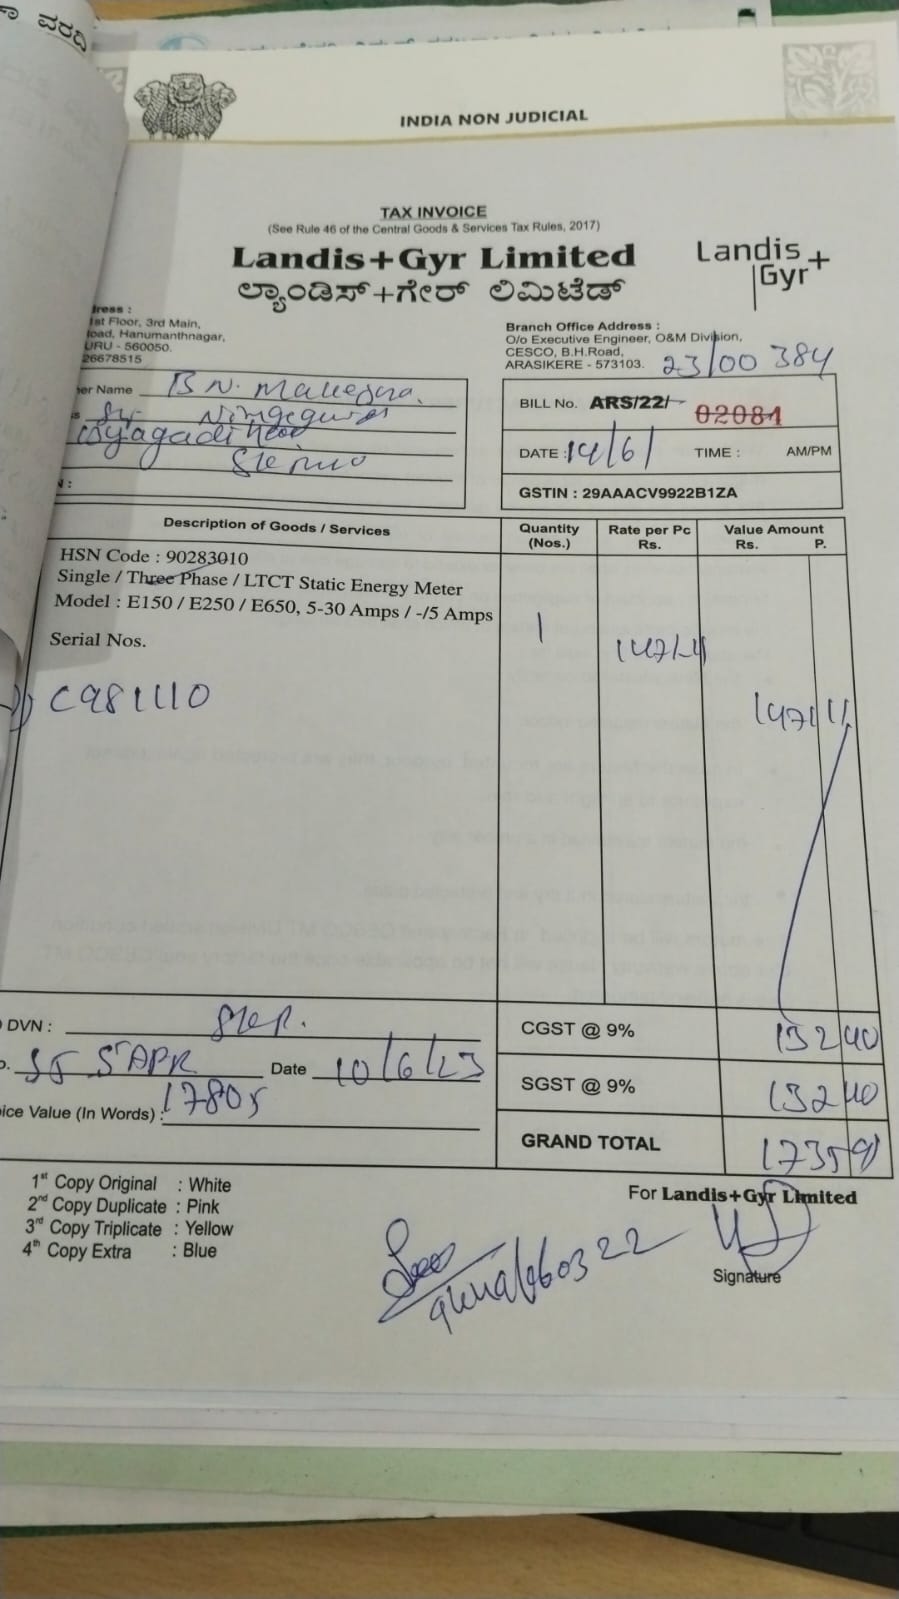 ವರದಿ
INDIA NON JUDICIAL
TAX INVOICE
(See Rule 46 of the Central Goods & Services Tax Rules, 2017)
Landis+Gyr Limited
ಲ್ಯಾಂಡಿಸ್+ಗೇರ್ ಲಿಮಿಟೆಡ್
Landis+Gyr
dress :
1st Floor, 3rd Main,
oad, Hanumanthnagar,
URU - 560050.
26678515
Branch Office Address :
O/o Executive Engineer, O&M Division,
CESCO, B.H.Road,
ARASIKERE - 573103.
23/00 384
er Name B N.
BILL No. ARS/22/- 02081
DATE : 14/6/ TIME : AM/PM
GSTIN : 29AAACV9922B1ZA
N :
Description of Goods / Services Quantity (Nos.) Rate per Pc Rs. Value Amount Rs. P.
HSN Code : 90283010
Single / Three Phase / LTCT Static Energy Meter
Model : E150 / E250 / E650, 5-30 Amps / -/5 Amps
1
Serial Nos.
C981110
DVN :
Date 10/6/23
ice Value (In Words) : 17805
CGST @ 9% 132 40
SGST @ 9% 132 40
GRAND TOTAL
1st Copy Original : White
2nd Copy Duplicate : Pink
3rd Copy Triplicate : Yellow
4th Copy Extra : Blue
For Landis+Gyr Limited
Signature